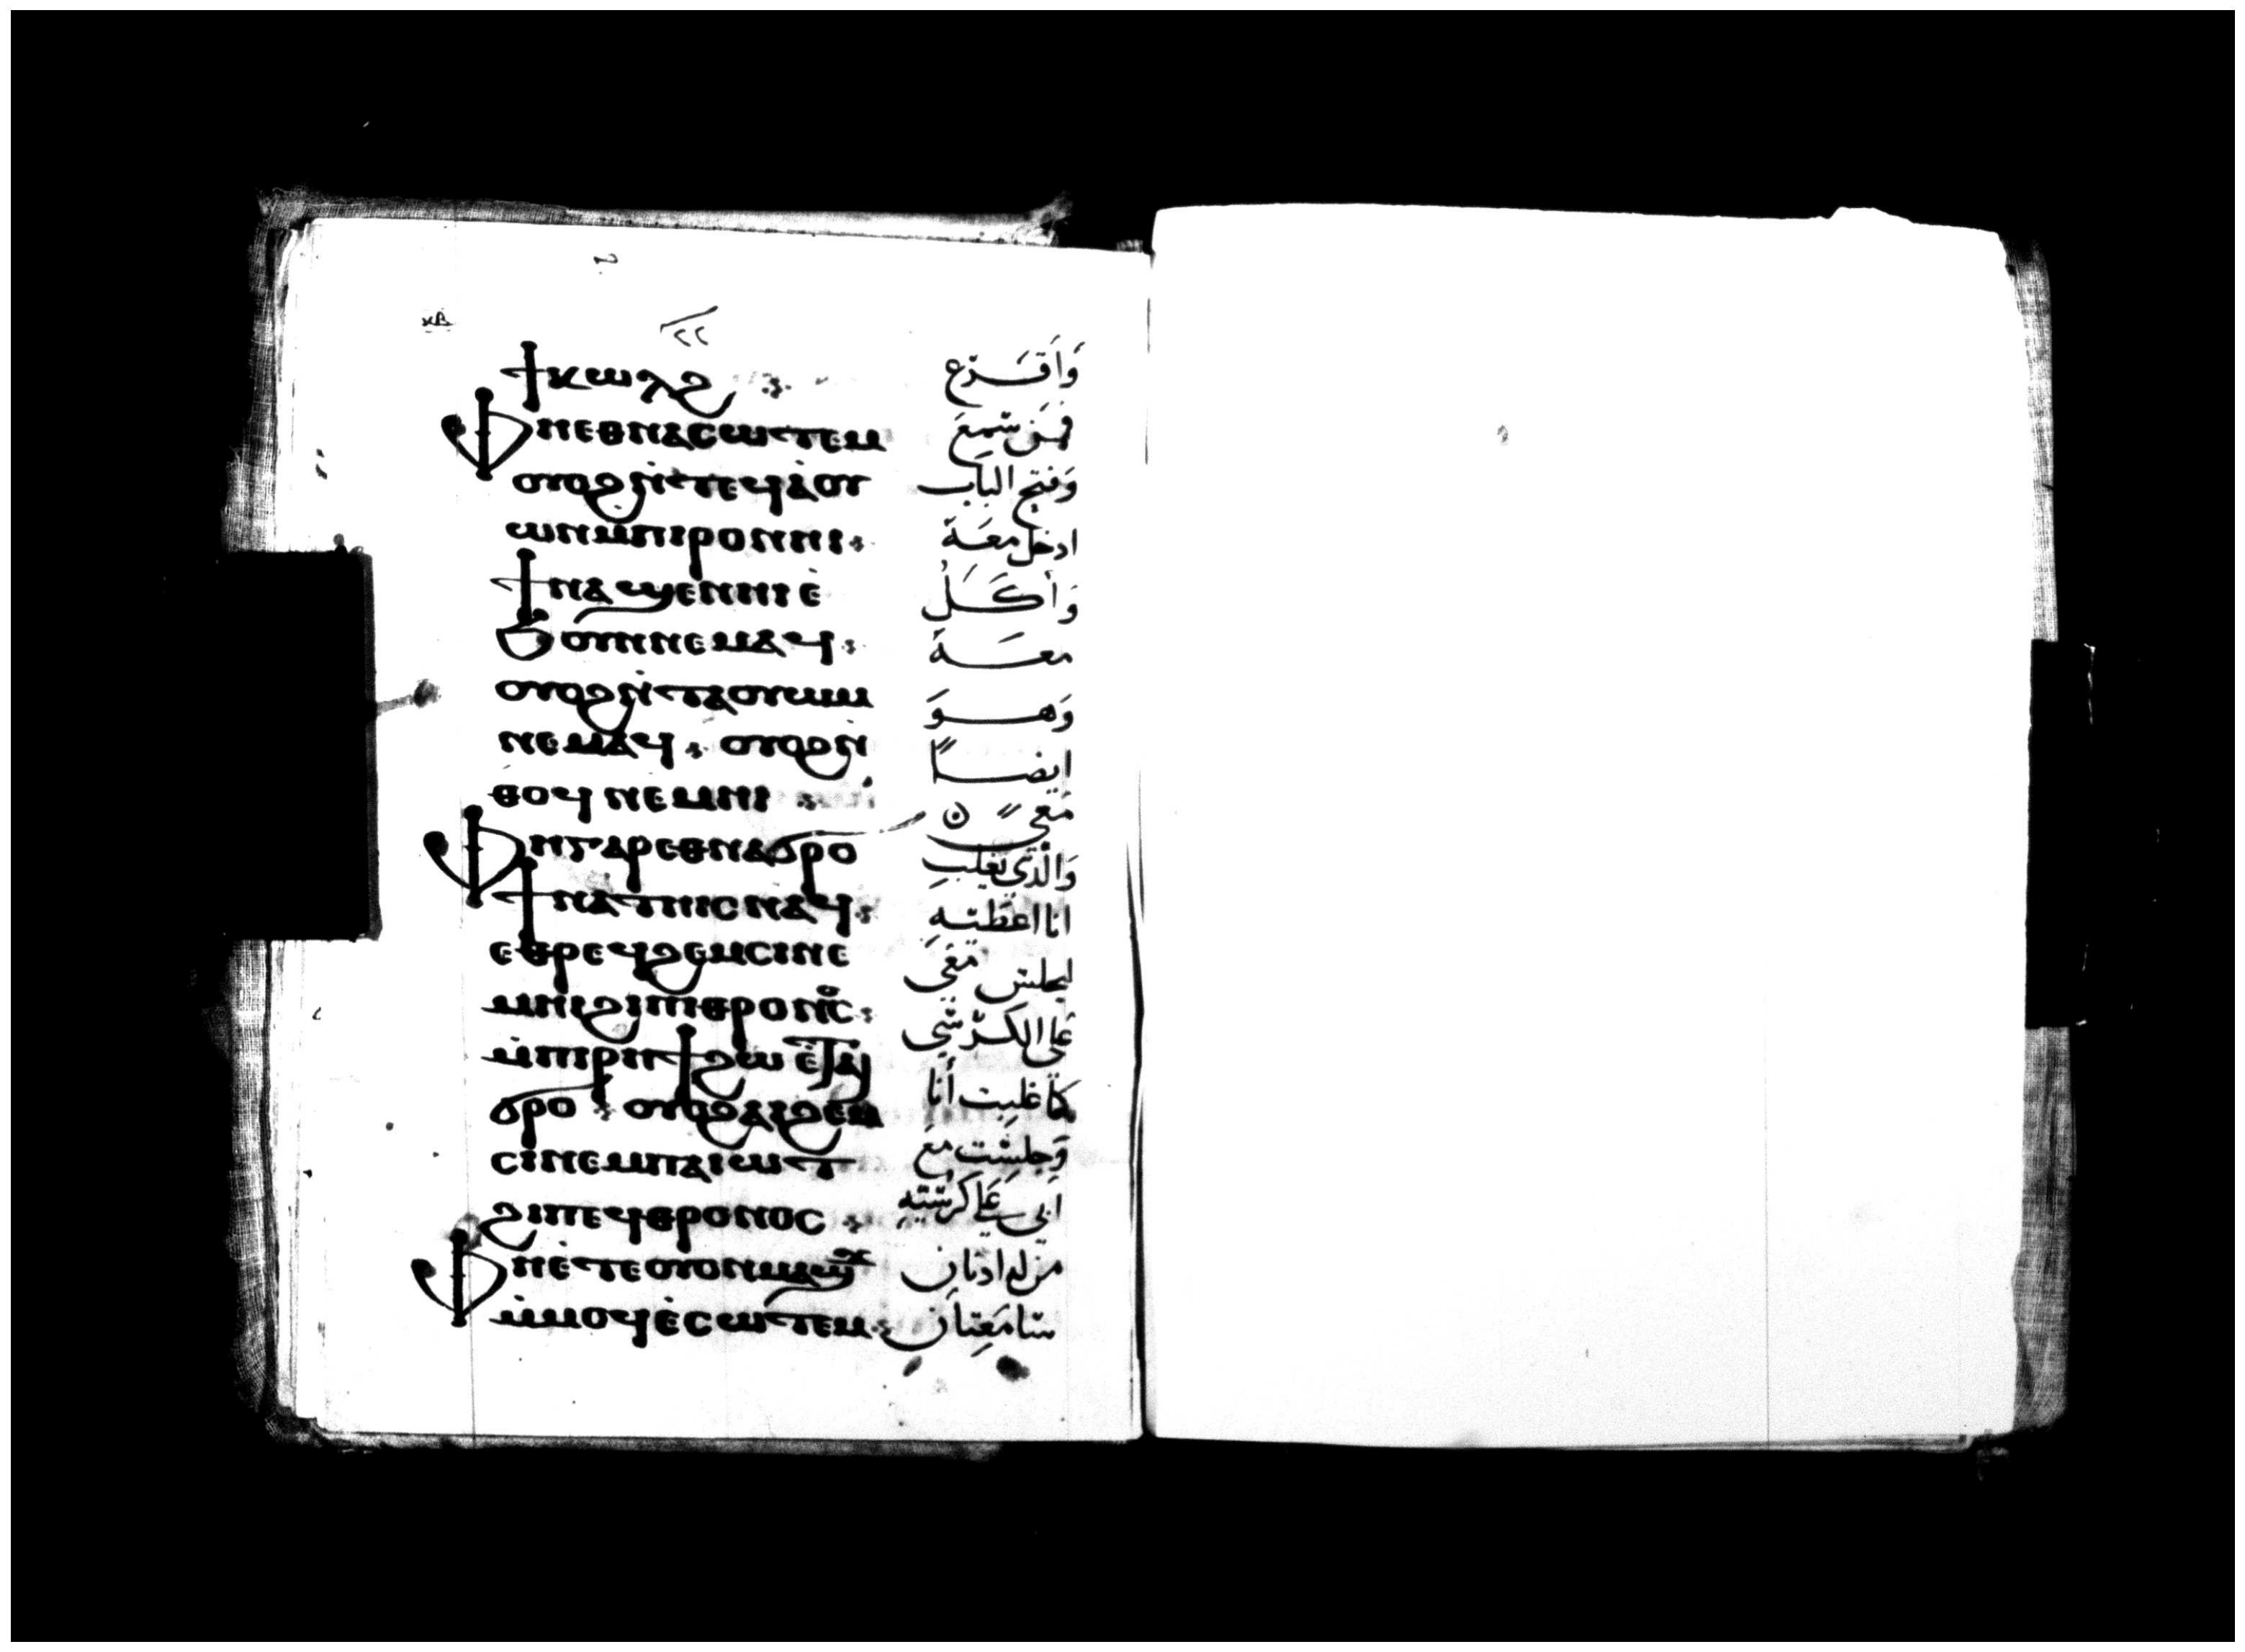 ⲕⲃ
٢٢
ϯⲕⲱⲗϩ وَأقَرَع
ⲫⲏⲉⲑⲛⲁⲥⲱⲧⲉⲙ فمَن سَمِعَ
ⲟⲩⲟϩⲛ̀ⲧⲉϥⲁ̀ⲟⲩ وَفتح البَاب
ⲱⲛⲙ̀ⲡⲓⲣⲟⲛⲛⲓ⁘ ادخل معَهَ
ϯⲛⲁϣⲉⲛⲛⲓⲉ̀ وَأكَلُ
ϧⲟⲩⲛⲛⲉⲙⲁϥ⁘ معَهَ
ⲟⲩⲟϩⲛ̀ⲧⲁⲟⲩⲱⲙ وَهوَ
ⲛⲉⲙⲁϥ⁘ ⲟⲩⲟϩⲛ̀ ايضاً
ⲑⲟϥ ⲛⲉⲙⲏⲓ مَعي
ⲫⲏⲅⲁⲣⲉⲑⲛⲁϭⲣⲟ وَالّذي يَغلبِ
ϯⲛⲁⲧⲏⲓⲥ ⲛⲁϥ⁘ انا اعَطيَهِ
ⲉⲑⲣⲉϥϩⲉⲙⲥⲓⲛⲉ ليجلس مَعَى
ⲙⲏⲓϩⲓⲡⲓⲑⲣⲟⲛⲟⲥ⁘ عَلى الكرسِي
ⲙ̀ⲡⲓⲣⲏϯϩⲱ ⲉ̀ⲧⲁⲓ كما غلبت أنا
ϭⲣⲟ⁘ ⲟⲩⲟϩⲁⲓϩⲉⲙ وَجلسْت معَ
ⲥⲓⲛⲉⲙⲡⲁⲓⲱⲧ أبي عَلى كرسيَّهِ
ϩⲓⲡⲉϥⲑⲣⲟⲛⲟⲥ⁘
ⲫⲏⲉ̀ⲧⲉⲟⲩⲟⲛⲙⲁϣϫ من له ادنان
ⲙ̀ⲙⲟϥⲉ̀ⲥⲱⲧⲉⲙ⁘ سَامَعِتان